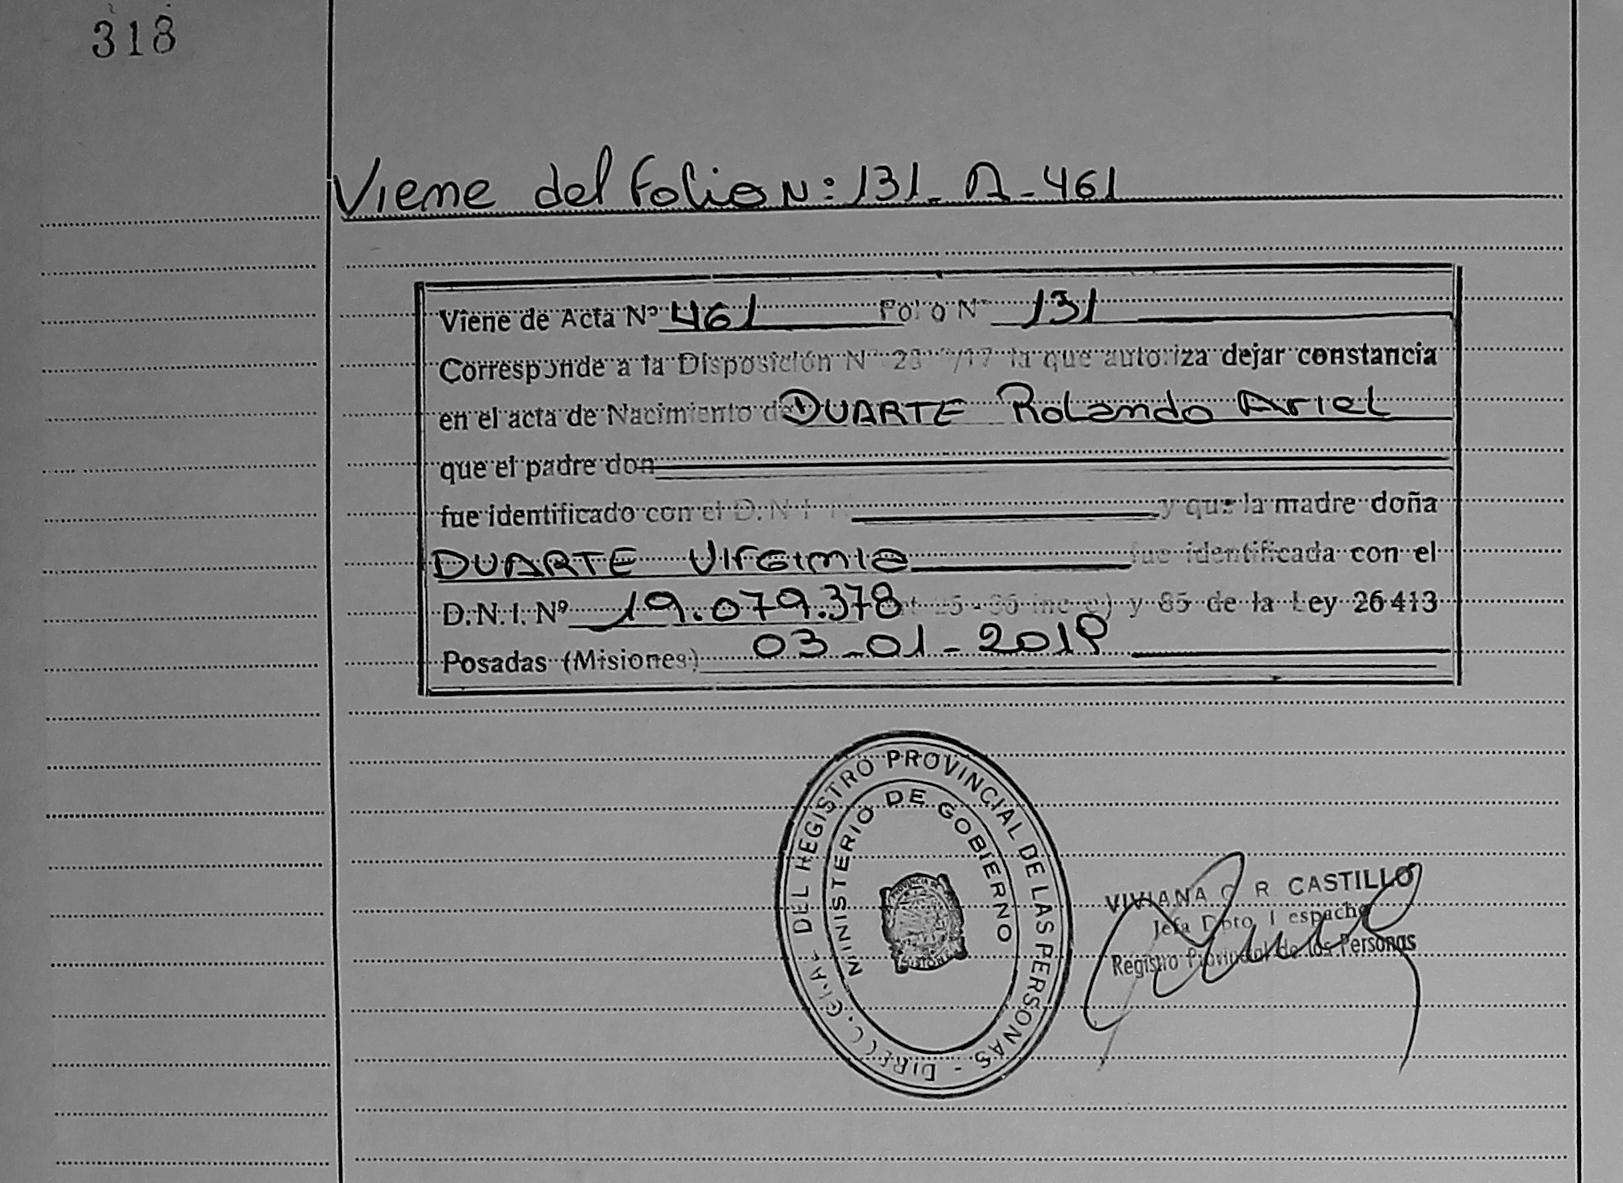 318
Viene del Folio N: 131 - A - 461
Viene de Acta Nº 461 Folio Nº 131
Corresponde a la Disposición Nº /17 la que autoriza dejar constancia
en el acta de Nacimiento de DUARTE Rolando Ariel
que el padre don
fue identificado con el D.N.I y que la madre doña
DUARTE Virginia fue identificada con el
D.N.I. Nº 19.079.378 y 85 de la Ley 26413
Posadas (Misiones) 03-01-2018
DIRECC. GRAL. DEL REGISTRO PROVINCIAL DE LAS PERSONAS -
MINISTERIO DE GOBIERNO
VIVIANA C. R. CASTILLO
Jefa Dpto. Despacho
Registro Provincial de las Personas